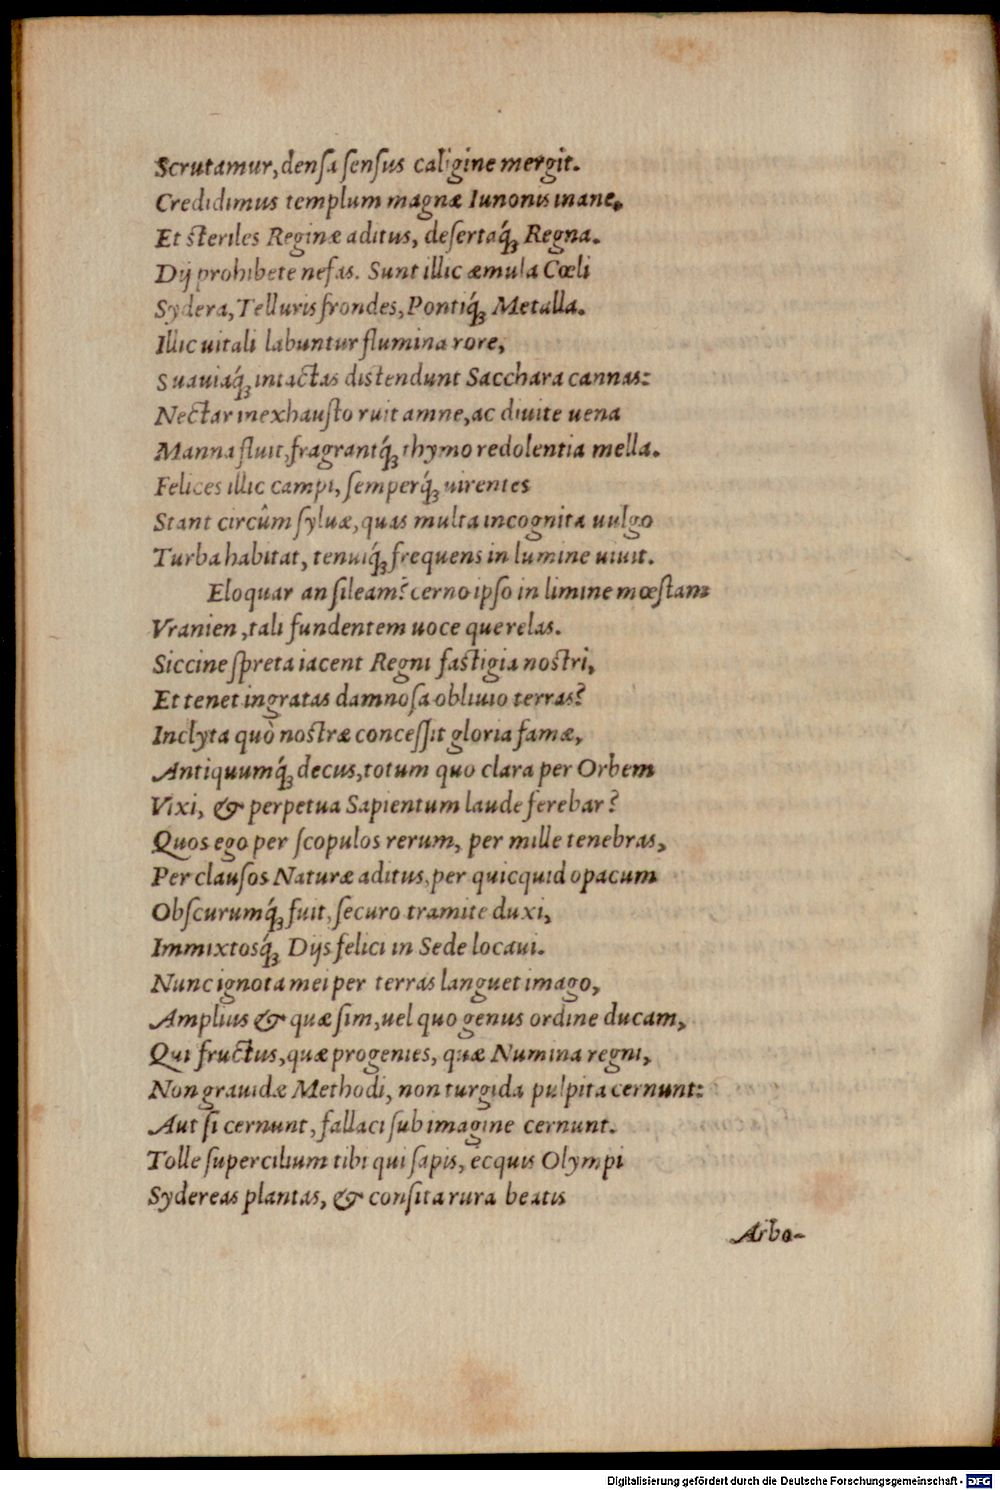 Scrutamur, densa sensus caligine mergit.
Credidimus templum magnæ Iunonis inane,
Et steriles Reginæ aditus, desertaq́ꝫ Regna.
Dij prohibete nefas. Sunt illic æmula Cœli
Sydera, Telluris frondes, Pontiq́ꝫ Metalla.
Illic uitali labuntur flumina rore,
Suauiaq́ꝫ intactas distendunt Sacchara cannas:
Nectar inexhausto ruit amne, ac diuite uena
Manna fluit, fragrantq́ꝫ thymo redolentia mella.
Felices illic campi, semperq́ꝫ uirentes
Stant circûm syluæ, quas multa incognita uulgo
Turba habitat, tenuiq́ꝫ frequens in lumine uiuit.
Eloquar an sileam? cerno ipso in limine mœstam
Vranien, tali fundentem uoce querelas.
Siccine spreta iacent Regni fastigia nostri,
Et tenet ingratas damnosa obliuio terras?
Inclyta quò nostræ concessit gloria famæ,
Antiquumq́ꝫ decus, totum quo clara per Orbem
Vixi, & perpetua Sapientum laude ferebar?
Quos ego per scopulos rerum, per mille tenebras,
Per clausos Naturæ aditus, per quicquid opacum
Obscurumq́ꝫ fuit, securo tramite duxi,
Immixtosq́ꝫ Dijs felici in Sede locaui.
Nunc ignota mei per terras languet imago,
Amplius & quæ sim, uel quo genus ordine ducam,
Qui fructus, quæ progenies, quæ Numina regni,
Non grauidæ Methodi, non turgida pulpita cernunt:
Aut si cernunt, fallaci sub imagine cernunt.
Tolle supercilium tibi qui sapis, ecquis Olympi
Sydereas plantas, & consita rura beatis
Arbo-
Digitalisierung gefördert durch die Deutsche Forschungsgemeinschaft - DFG